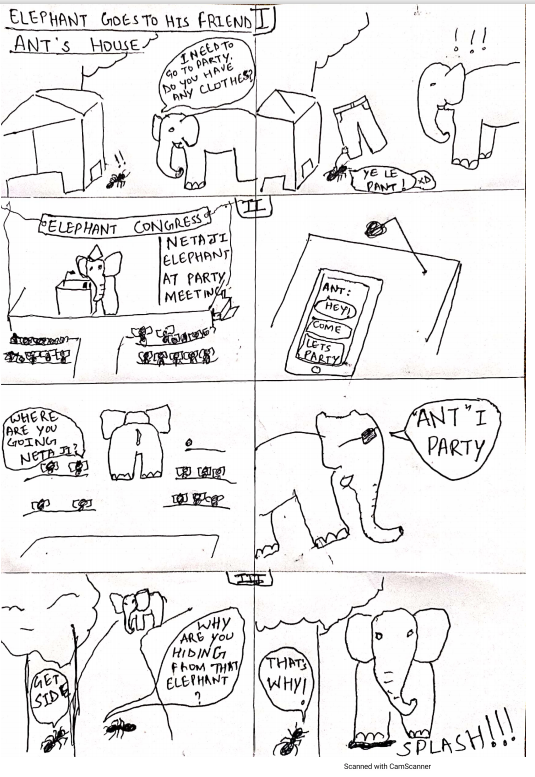 ELEPHANT GOES TO HIS FRIEND
ANT'S HOUSE
I
I NEED TO
GO TO PARTY.
DO YOU HAVE
ANY CLOTHES?
!!
!!!
YE LE
PANT!
XD
II
ELEPHANT CONGRESS
NETAJI
ELEPHANT
AT PARTY
MEETING
ANT:
HEY!
COME
LETS
PARTY
WHERE
ARE YOU
GOING
NETAJI?
"ANT" I
PARTY
III
GET
SIDE
WHY
ARE YOU
HIDING
FROM THAT
ELEPHANT
?
THATS
WHY!
SPLASH!!!
Scanned with CamScanner